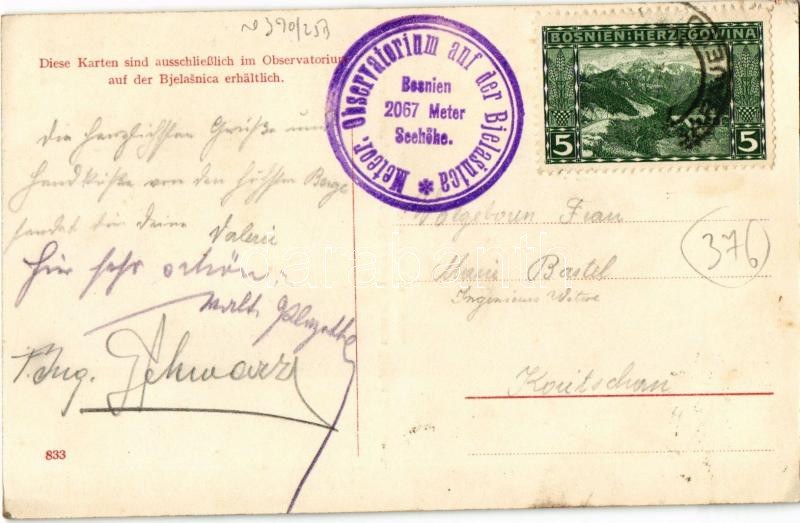 No 390/253
Diese Karten sind ausschließlich im Observatorium
auf der Bjelašnica erhältlich.
Meteor. Observatorium auf der Bjelašnica *
Bosnien
2067 Meter
Seehöhe.
BOSNIEN-HERZEGOWINA
5 5
Die herzlichsten Grüße und
Handküsse von den höchsten Berge
sendet dir deine Valerie
hier sehr schön
Walt.
Ing. Schwarz
Wolgeboren Frau
Marie Bastel
Ingenieurs Witwe
376
833